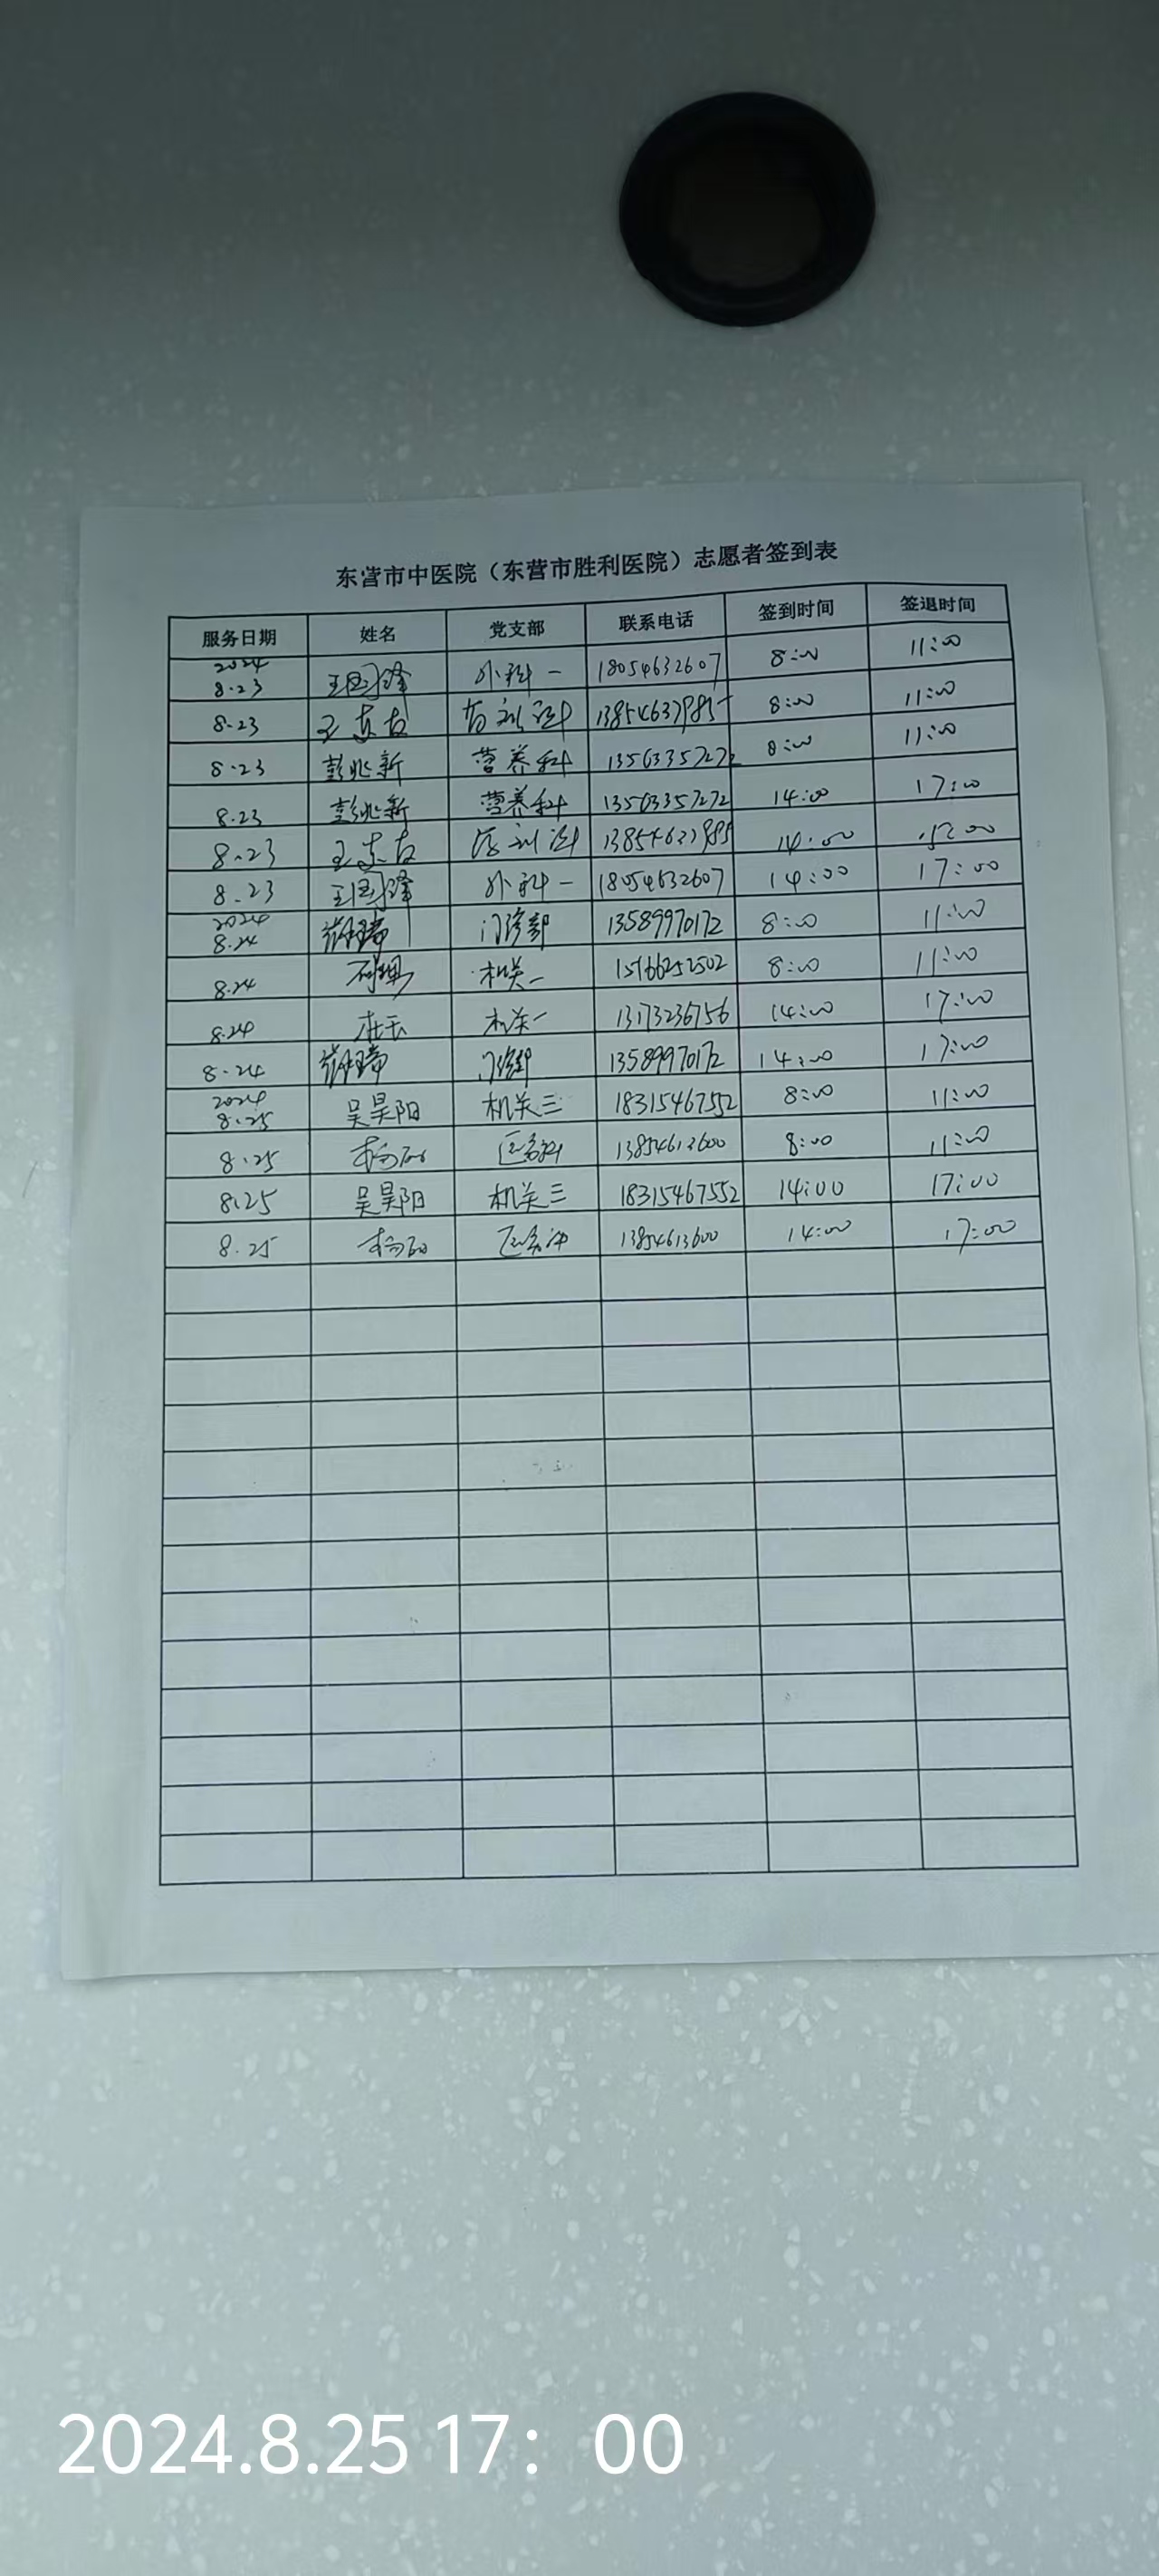 东营市中医院（东营市胜利医院）志愿者签到表
服务日期 姓名 党支部 联系电话 签到时间 签退时间
2024 8.23 王国泽 外科一 18054632607 8:00 11:00
8.23 王东 8:00 11:00
8.23 彭兆新 营养科 13563357272 8:00 11:00
8.23 彭兆新 营养科 13563357272 14:00 17:00
8.23 王东 14:00
8.23 王国泽 外科一 18054632607 14:00 17:00
2024 8.24 门诊部 13589970172 8:00 11:00
8.24 机关一 15166252502 8:00 11:00
8.24 机关一 13173236756 14:00 17:00
8.24 门诊部 13589970172 14:00 17:00
2024 8.25 吴昊阳 机关三 18315467552 8:00 11:00
8.25 医务科 13854613600 8:00 11:00
8.25 吴昊阳 机关三 18315467552 14:00 17:00
8.25 医务科 13854613600 14:00 17:00
2024.8.25 17：00